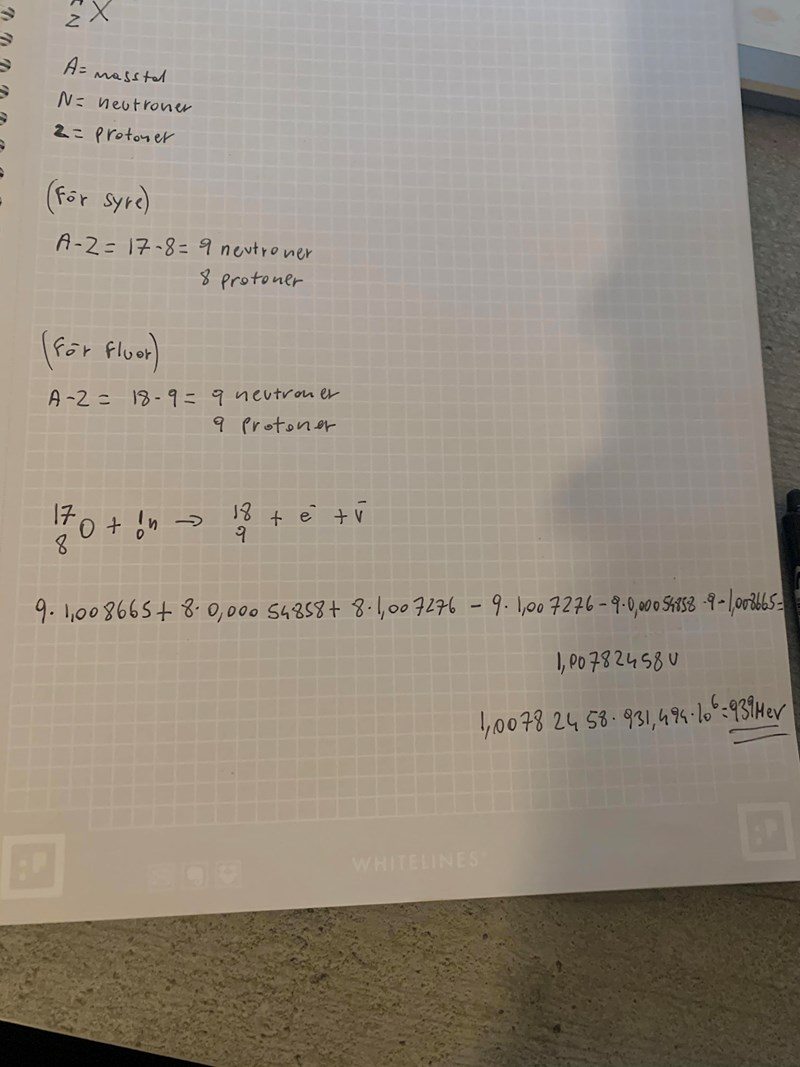 A
Z X
A= masstal
N= neutroner
Z= protoner
(För syre)
A-Z= 17-8= 9 neutroner
8 protoner
(För fluor)
A-Z= 18-9= 9 neutroner
9 protoner
17 8 O + 1 0 n → 18 9 + e⁻ + v̄
9·1,008665+ 8·0,00054858+ 8·1,007276 - 9·1,007276-9·0,00054858·9-1,008665=
1,00782458 u
1,00782458·931,494·10⁶=939MeV
WHITELINES®